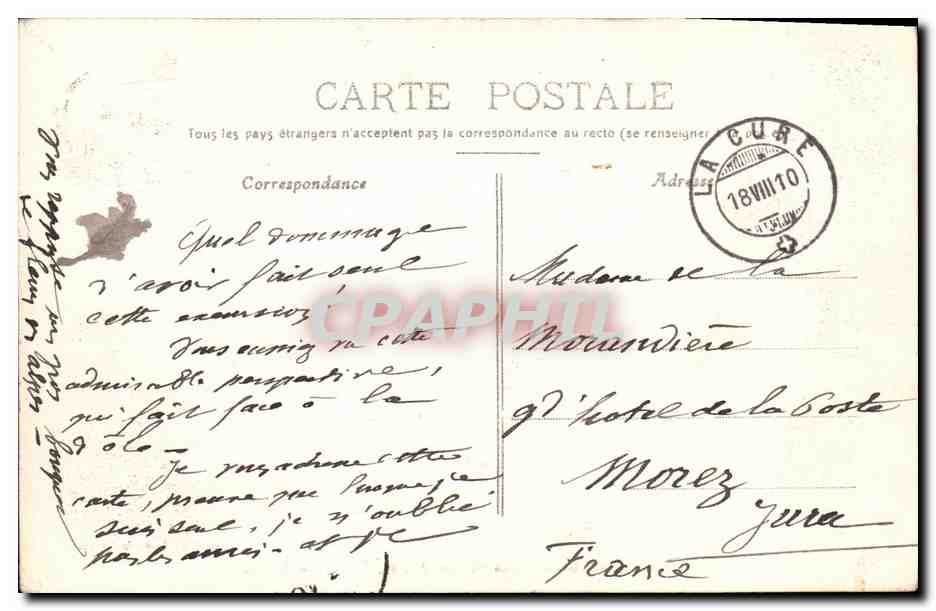 CARTE POSTALE
Tous les pays étrangers n'acceptent pas la correspondance au recto (se renseigner
Correspondance
Adresse
LA CURE
18 VIII 10
Quel dommage
d'avoir fait seul
cette excursion!
Vous auriez vu cette
admirable perspective,
qui fait face à la
dôle —
Je vous adresse cette
carte, preuve que lorsque je
suis seul, je n'oublie
pas les amis - et je
vous rapporte un gros bouquet
de fleurs des alpes —
Madame de la
Morandière
gd hotel de la Poste
Morez
Jura
France
CPAPHIL